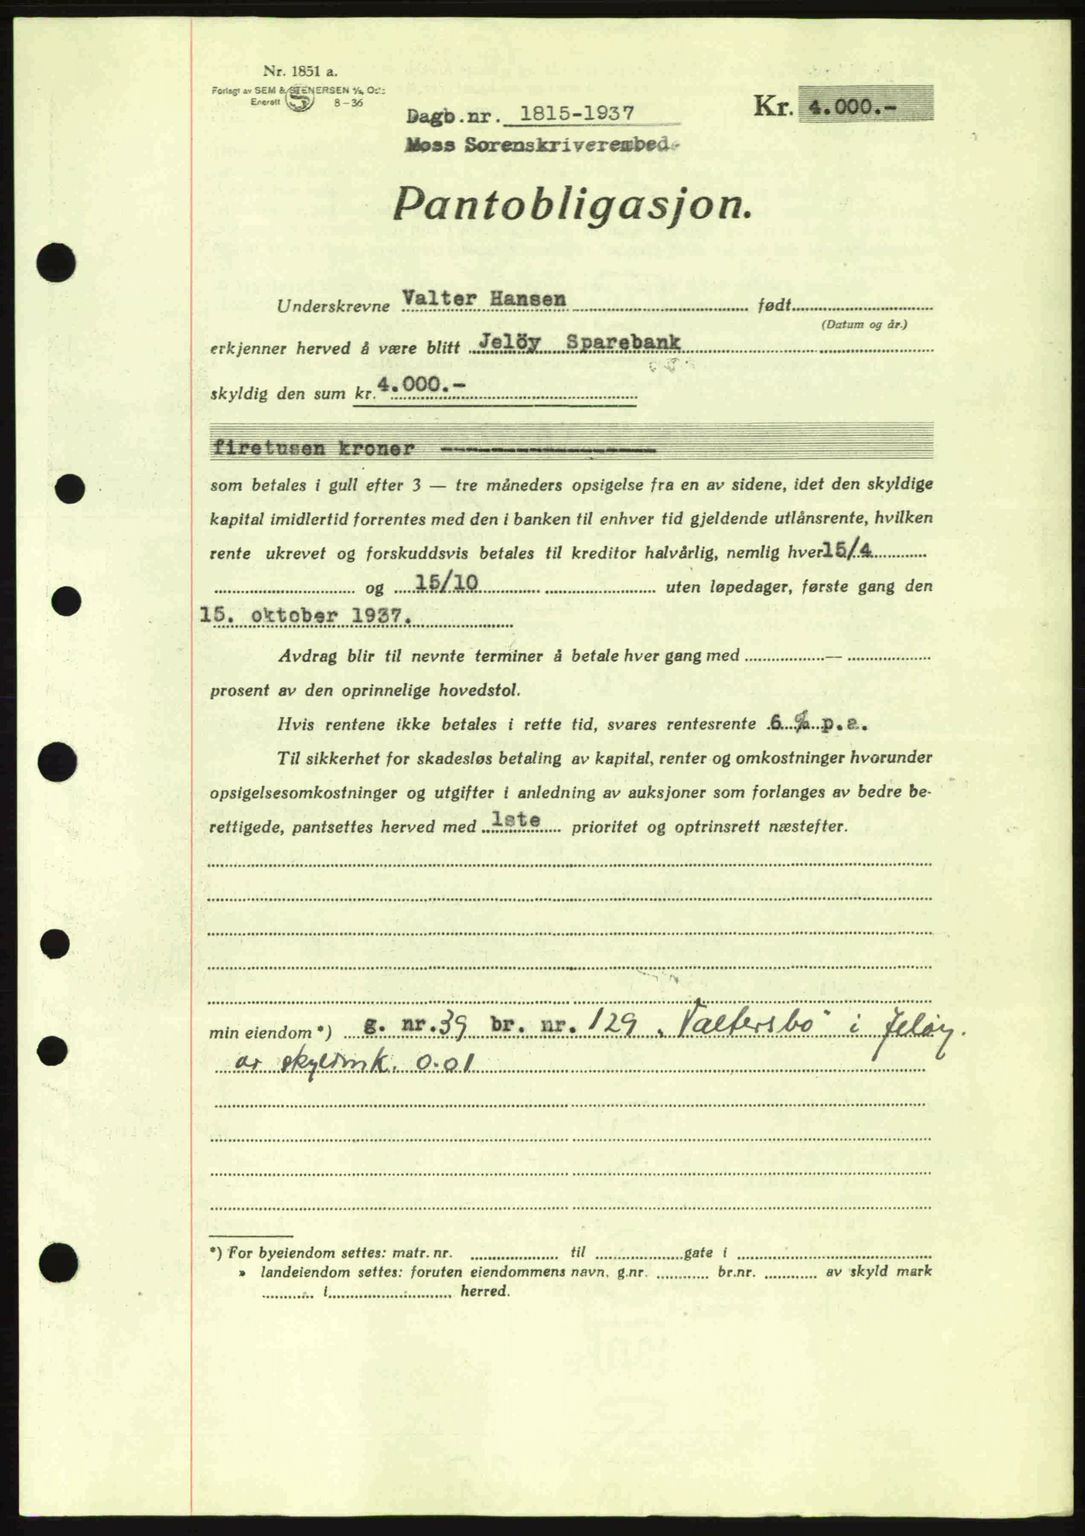 Nr. 1851 a.
Forlagt av SEM & STENERSEN A/S, Oslo
Enerett 8-36
Kr. 4.000.-
Dagb.nr. 1815-1937
Moss Sorenskriverembede
Pantobligasjon.
Underskrevne Valter Hansen født
(Datum og år.)
erkjenner herved å være blitt Jelöy Sparebank
skyldig den sum kr. 4.000.-
firetusen kroner
som betales i gull efter 3 — tre måneders opsigelse fra en av sidene, idet den skyldige
kapital imidlertid forrentes med den i banken til enhver tid gjeldende utlånsrente, hvilken
rente ukrevet og forskuddsvis betales til kreditor halvårlig, nemlig hver 15/4
og 15/10 uten løpedager, første gang den
15. oktober 1937.
Avdrag blir til nevnte terminer å betale hver gang med —
prosent av den oprinnelige hovedstol.
Hvis rentene ikke betales i rette tid, svares rentesrente 6 % p.a.
Til sikkerhet for skadesløs betaling av kapital, renter og omkostninger hvorunder
opsigelsesomkostninger og utgifter i anledning av auksjoner som forlanges av bedre be-
rettigede, pantsettes herved med 1ste prioritet og optrinsrett næstefter.
min eiendom *) g. nr. 39 br. nr. 129 „Valtersbo" i Jeløy.
av skyldmk. 0.01
*) For byeiendom settes: matr. nr. til gate i
» landeiendom settes: foruten eiendommens navn, g.nr. br.nr. av skyld mark
i herred.